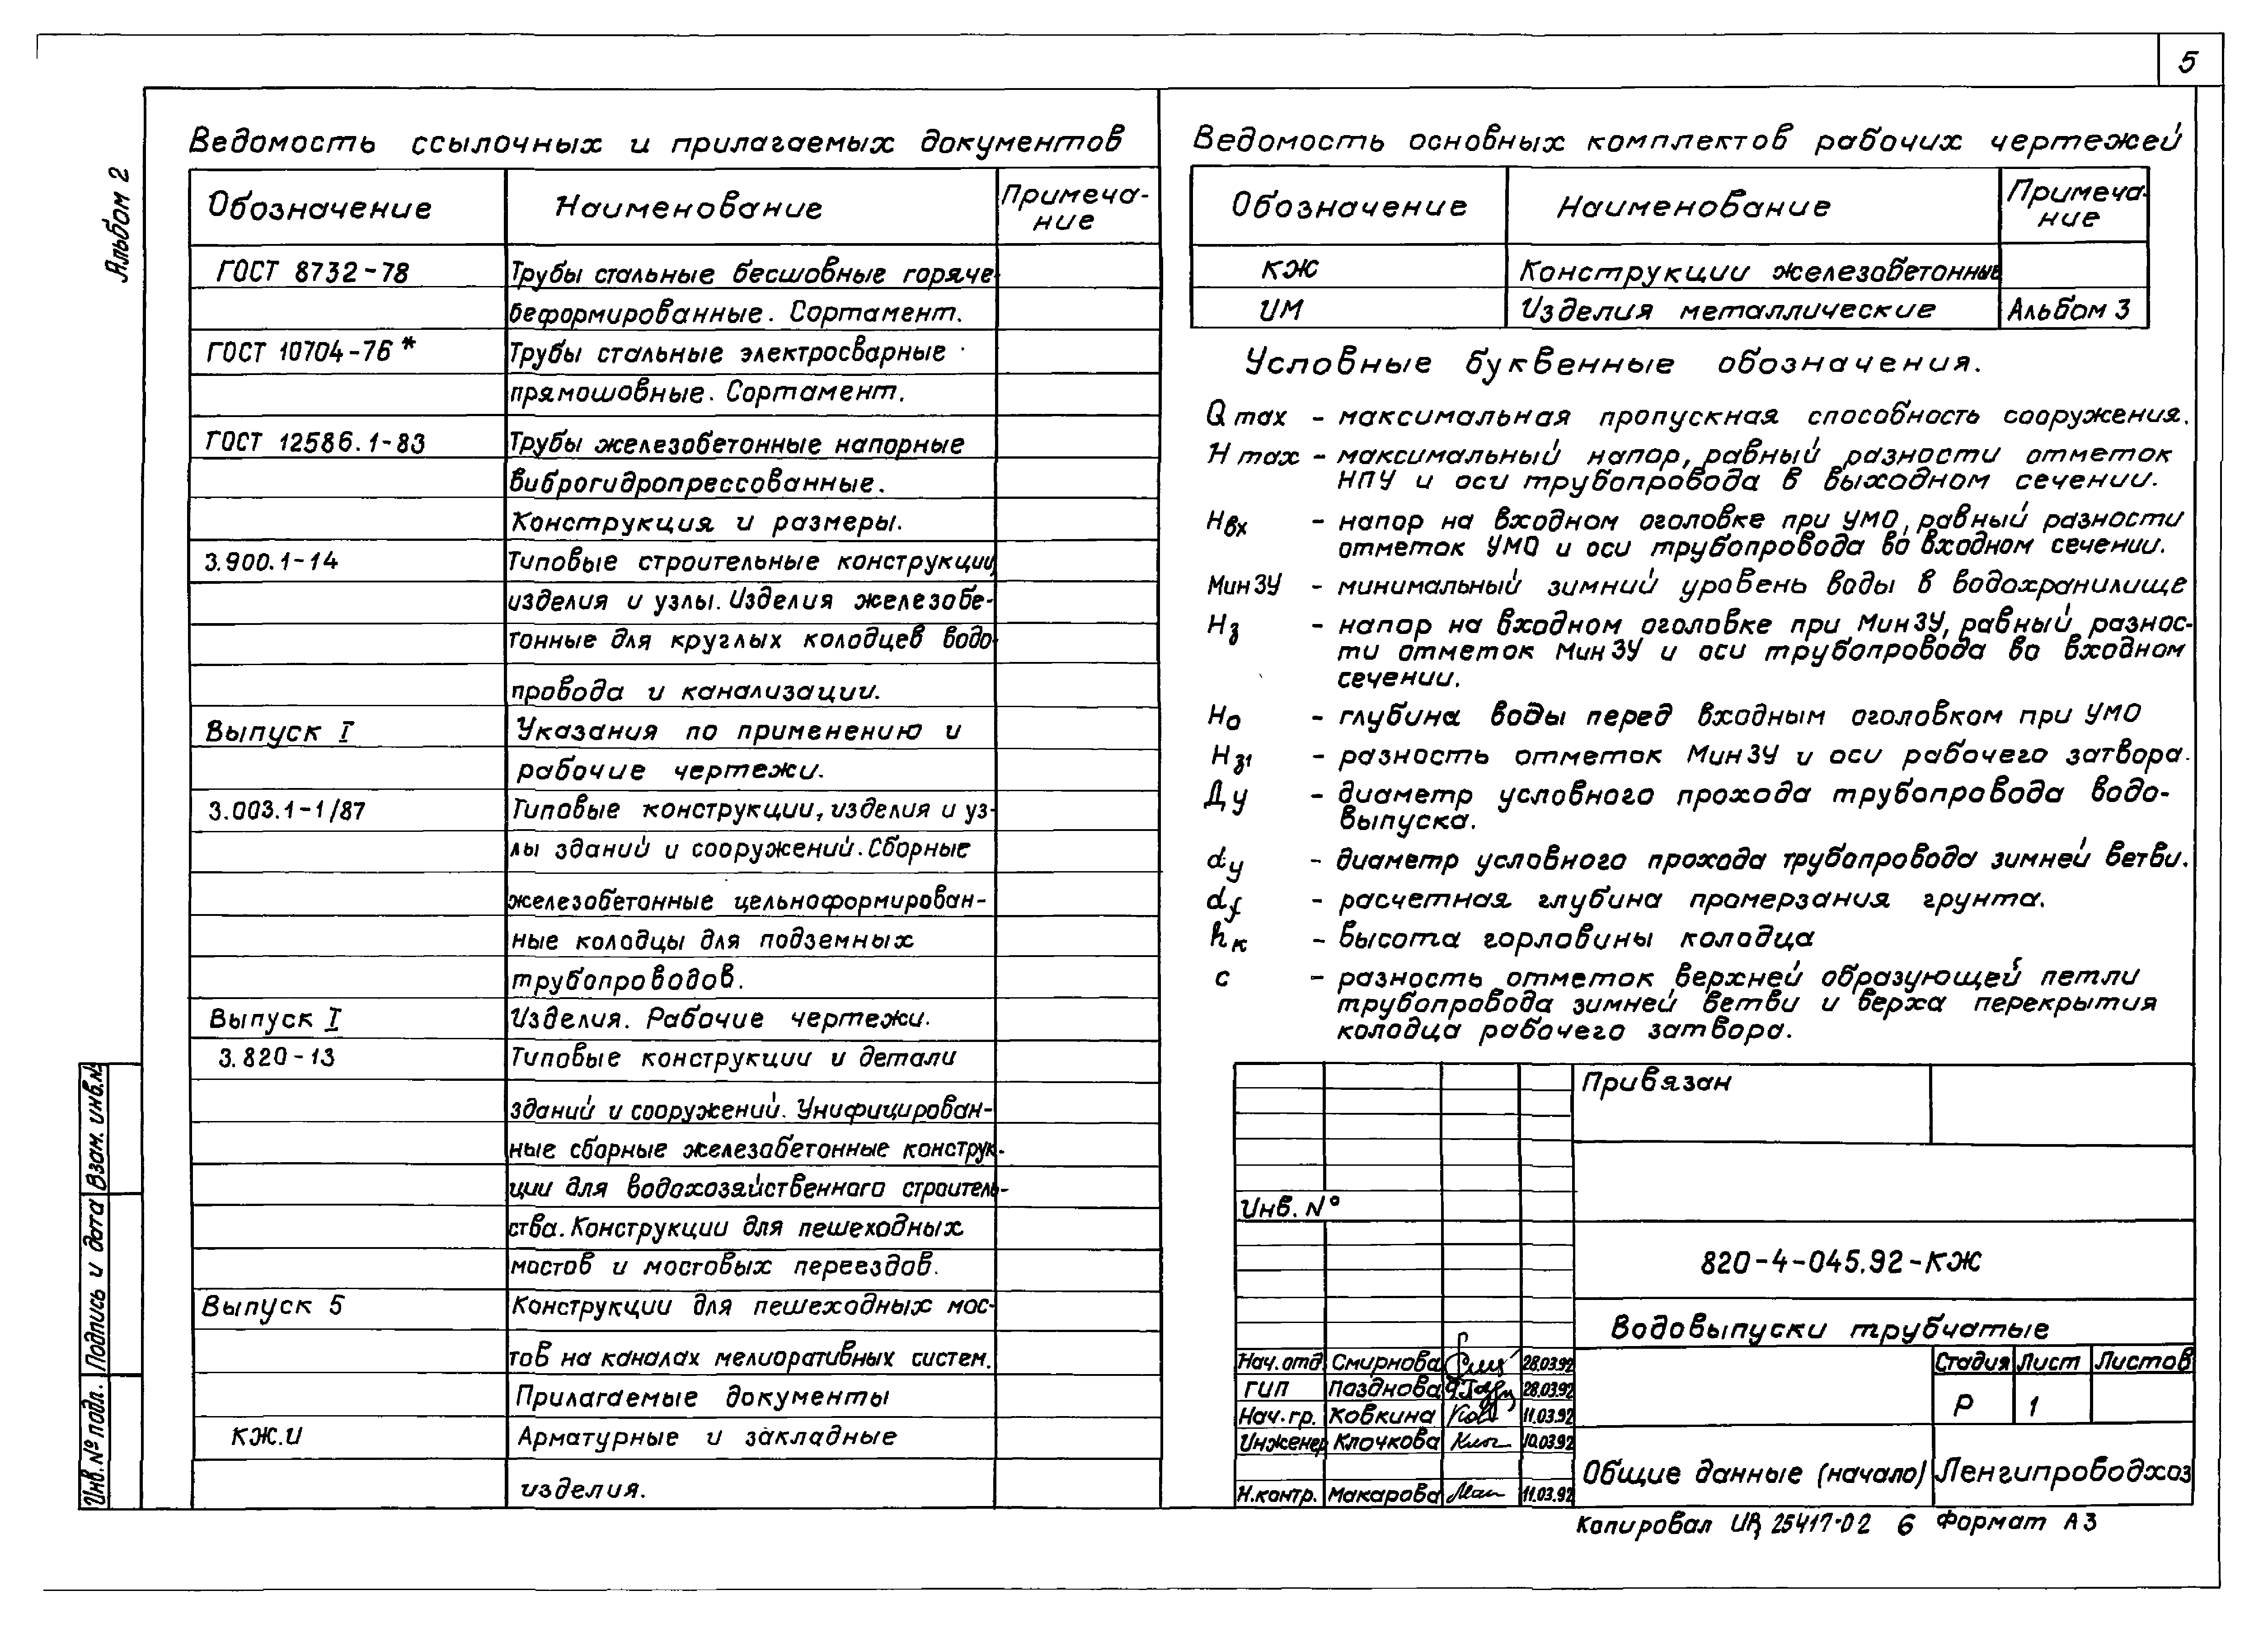 5
Альбом 2
Ведомость ссылочных и прилагаемых документов
Обозначение Наименование Примеча-
ние
ГОСТ 8732-78 Трубы стальные бесшовные горяче
беформированные. Сортамент.
ГОСТ 10704-76* Трубы стальные электросварные
прямошовные. Сортамент.
ГОСТ 12586.1-83 Трубы железобетонные напорные
виброгидропрессованные.
Конструкция и размеры.
3.900.1-14 Типовые строительные конструкции,
изделия и узлы. Изделия железобе-
тонные для круглых колодцев водо-
провода и канализации.
Выпуск I Указания по применению и
рабочие чертежи.
3.003.1-1/87 Типовые конструкции, изделия и уз-
лы зданий и сооружений. Сборные
железобетонные цельноформирован-
ные колодцы для подземных
трубопроводов.
Выпуск I Изделия. Рабочие чертежи.
3.820-13 Типовые конструкции и детали
зданий и сооружений. Унифицирован-
ные сборные железобетонные конструк-
ции для водохозяйственного строитель-
ства. Конструкции для пешеходных
мостов и мостовых переездов.
Выпуск 5 Конструкции для пешеходных мос-
тов на каналах мелиоративных систем.
Прилагаемые документы
КЖ.И Арматурные и закладные
изделия.
Ведомость основных комплектов рабочих чертежей
Обозначение Наименование Примеча-
ние
КЖ Конструкции железобетонные
ИМ Изделия металлические Альбом 3
Условные буквенные обозначения.
Q max - максимальная пропускная способность сооружения.
H max - максимальный напор, равный разности отметок
НПУ и оси трубопровода в выходном сечении.
Hвх - напор на входном оголовке при УМО, равный разности
отметок УМО и оси трубопровода во входном сечении.
Мин ЗУ - минимальный зимний уровень воды в водохранилище
Hз - напор на входном оголовке при Мин ЗУ, равный разнос-
ти отметок Мин ЗУ и оси трубопровода во входном
сечении.
Hо - глубина воды перед входным оголовком при УМО
Hз1 - разность отметок Мин ЗУ и оси рабочего затвора.
Ду - диаметр условного прохода трубопровода водо-
выпуска.
dу - диаметр условного прохода трубопровода зимней ветви.
df - расчетная глубина промерзания грунта.
hк - высота горловины колодца
с - разность отметок верхней образующей петли
трубопровода зимней ветви и верха перекрытия
колодца рабочего затвора.
Привязан
Инв. №
820-4-045.92-КЖ
Водовыпуски трубчатые
Нач. отд Смирнова 28.03.92
ГИП Позднова 28.03.92
Нач. гр. Ковкина 11.03.92
Инженер Клочкова 10.03.92
Н.контр. Макарова 11.03.92
Стадия Лист Листов
Р 1
Общие данные (начало) Ленгипроводхоз
Взам. инв.№
Подпись и дата
Инв. № подл.
Копировал 25417-02 6 Формат А3